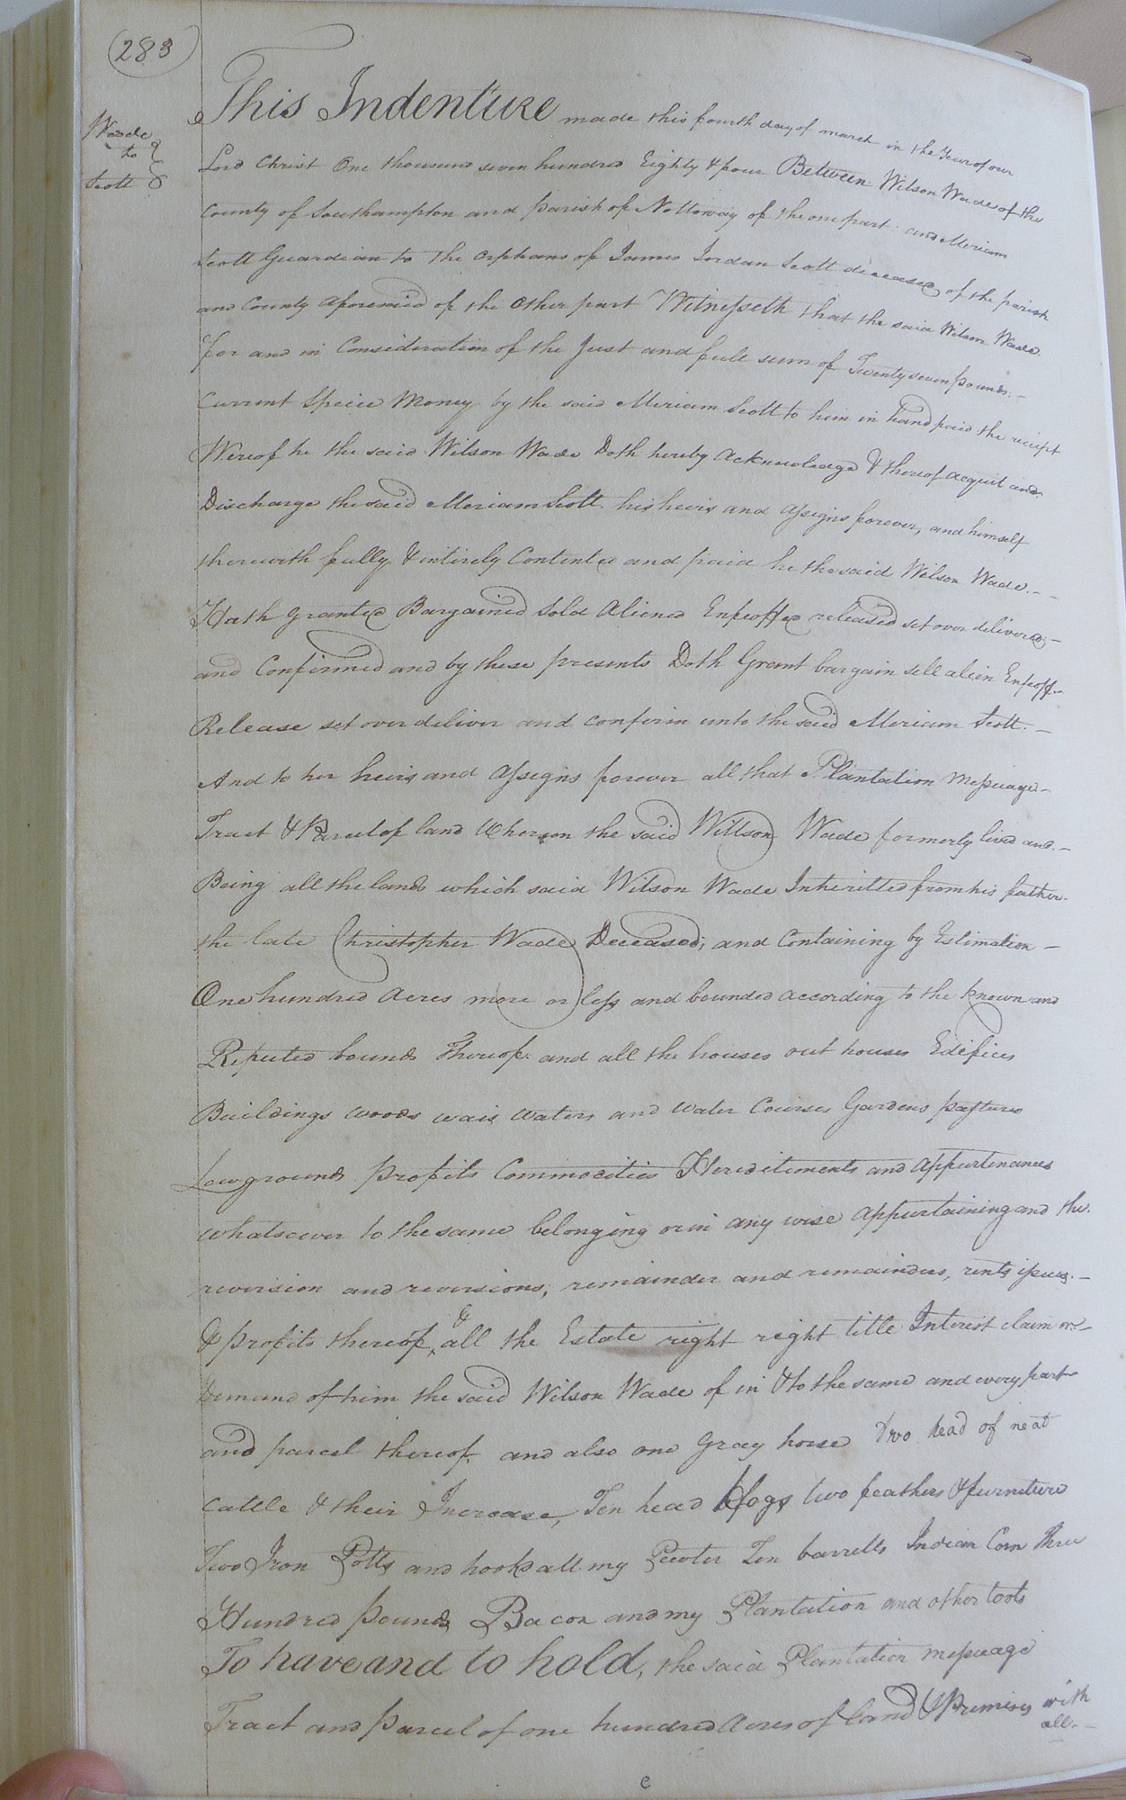 283
Wade
to
Scott
This Indenture made this fourth day of march in the Year of our
Lord Christ One thousand seven hundred Eighty & four Between Wilson Wade of the
County of Southampton and parish of Nottoway of the one part and Meriam
Scott Guardian to the orphans of James Jordan Scott deceased of the parish
and County aforesaid of the other part Witnesseth that the said Wilson Wade
for and in Consideration of the Just and full sum of Twenty seven pounds
Current Specie Money by the said Meriam Scott to him in hand paid the reciept
Wereof he the said Wilson Wade Doth hereby Acknowledge & thereof acquit and
Discharge the said Meriam Scott his heirs and assigns forever, and himself
therewith fully & intirely Contented and paid he the said Wilson Wade
Hath Granted Bargained Sold Aliened Enfeoffed released set over delivered
and Confirmed and by these presents Doth Grant bargain sell alien Enfeoff
Release set over deliver and confirm unto the said Meriam Scott
And to her heirs and Assigns forever all that Plantation Messuage
Tract & Parcel of land Whereon the said Willson Wade formerly lived and
Being all the lands which said Wilson Wade Inheritted from his father
the late Christopher Wade Deceased; and Containing by Estimation
One hundred Acres more or less and bounded according to the known and
Reputed bounds Thereof and all the houses out houses Edifices
Buildings woods wais waters and water Courses Gardens pastures
Lowgrounds profits Commodities Hereditiments and Appurtenances
whatsoever to the same belonging or in any wise appurtaining and the
reversion and reversions, remainder and remainders, rents issues
& profits thereof, & all the Estate right right title Interest claim or
Demand of him the said Wilson Wade of in & to the same and every part
and parcel thereof and also one Gray horse two head of neat
Cattle & their Increase, Ten head Hogs two feathers & furniture
Two Iron Potts and hooks all my Pewter Ten barrells Indian Corn three
Hundred pounds Bacon and my Plantation and other tools
To have and to hold, the said Plantation messuage
Tract and parcel of one hundred Acres of land & Premises with
all